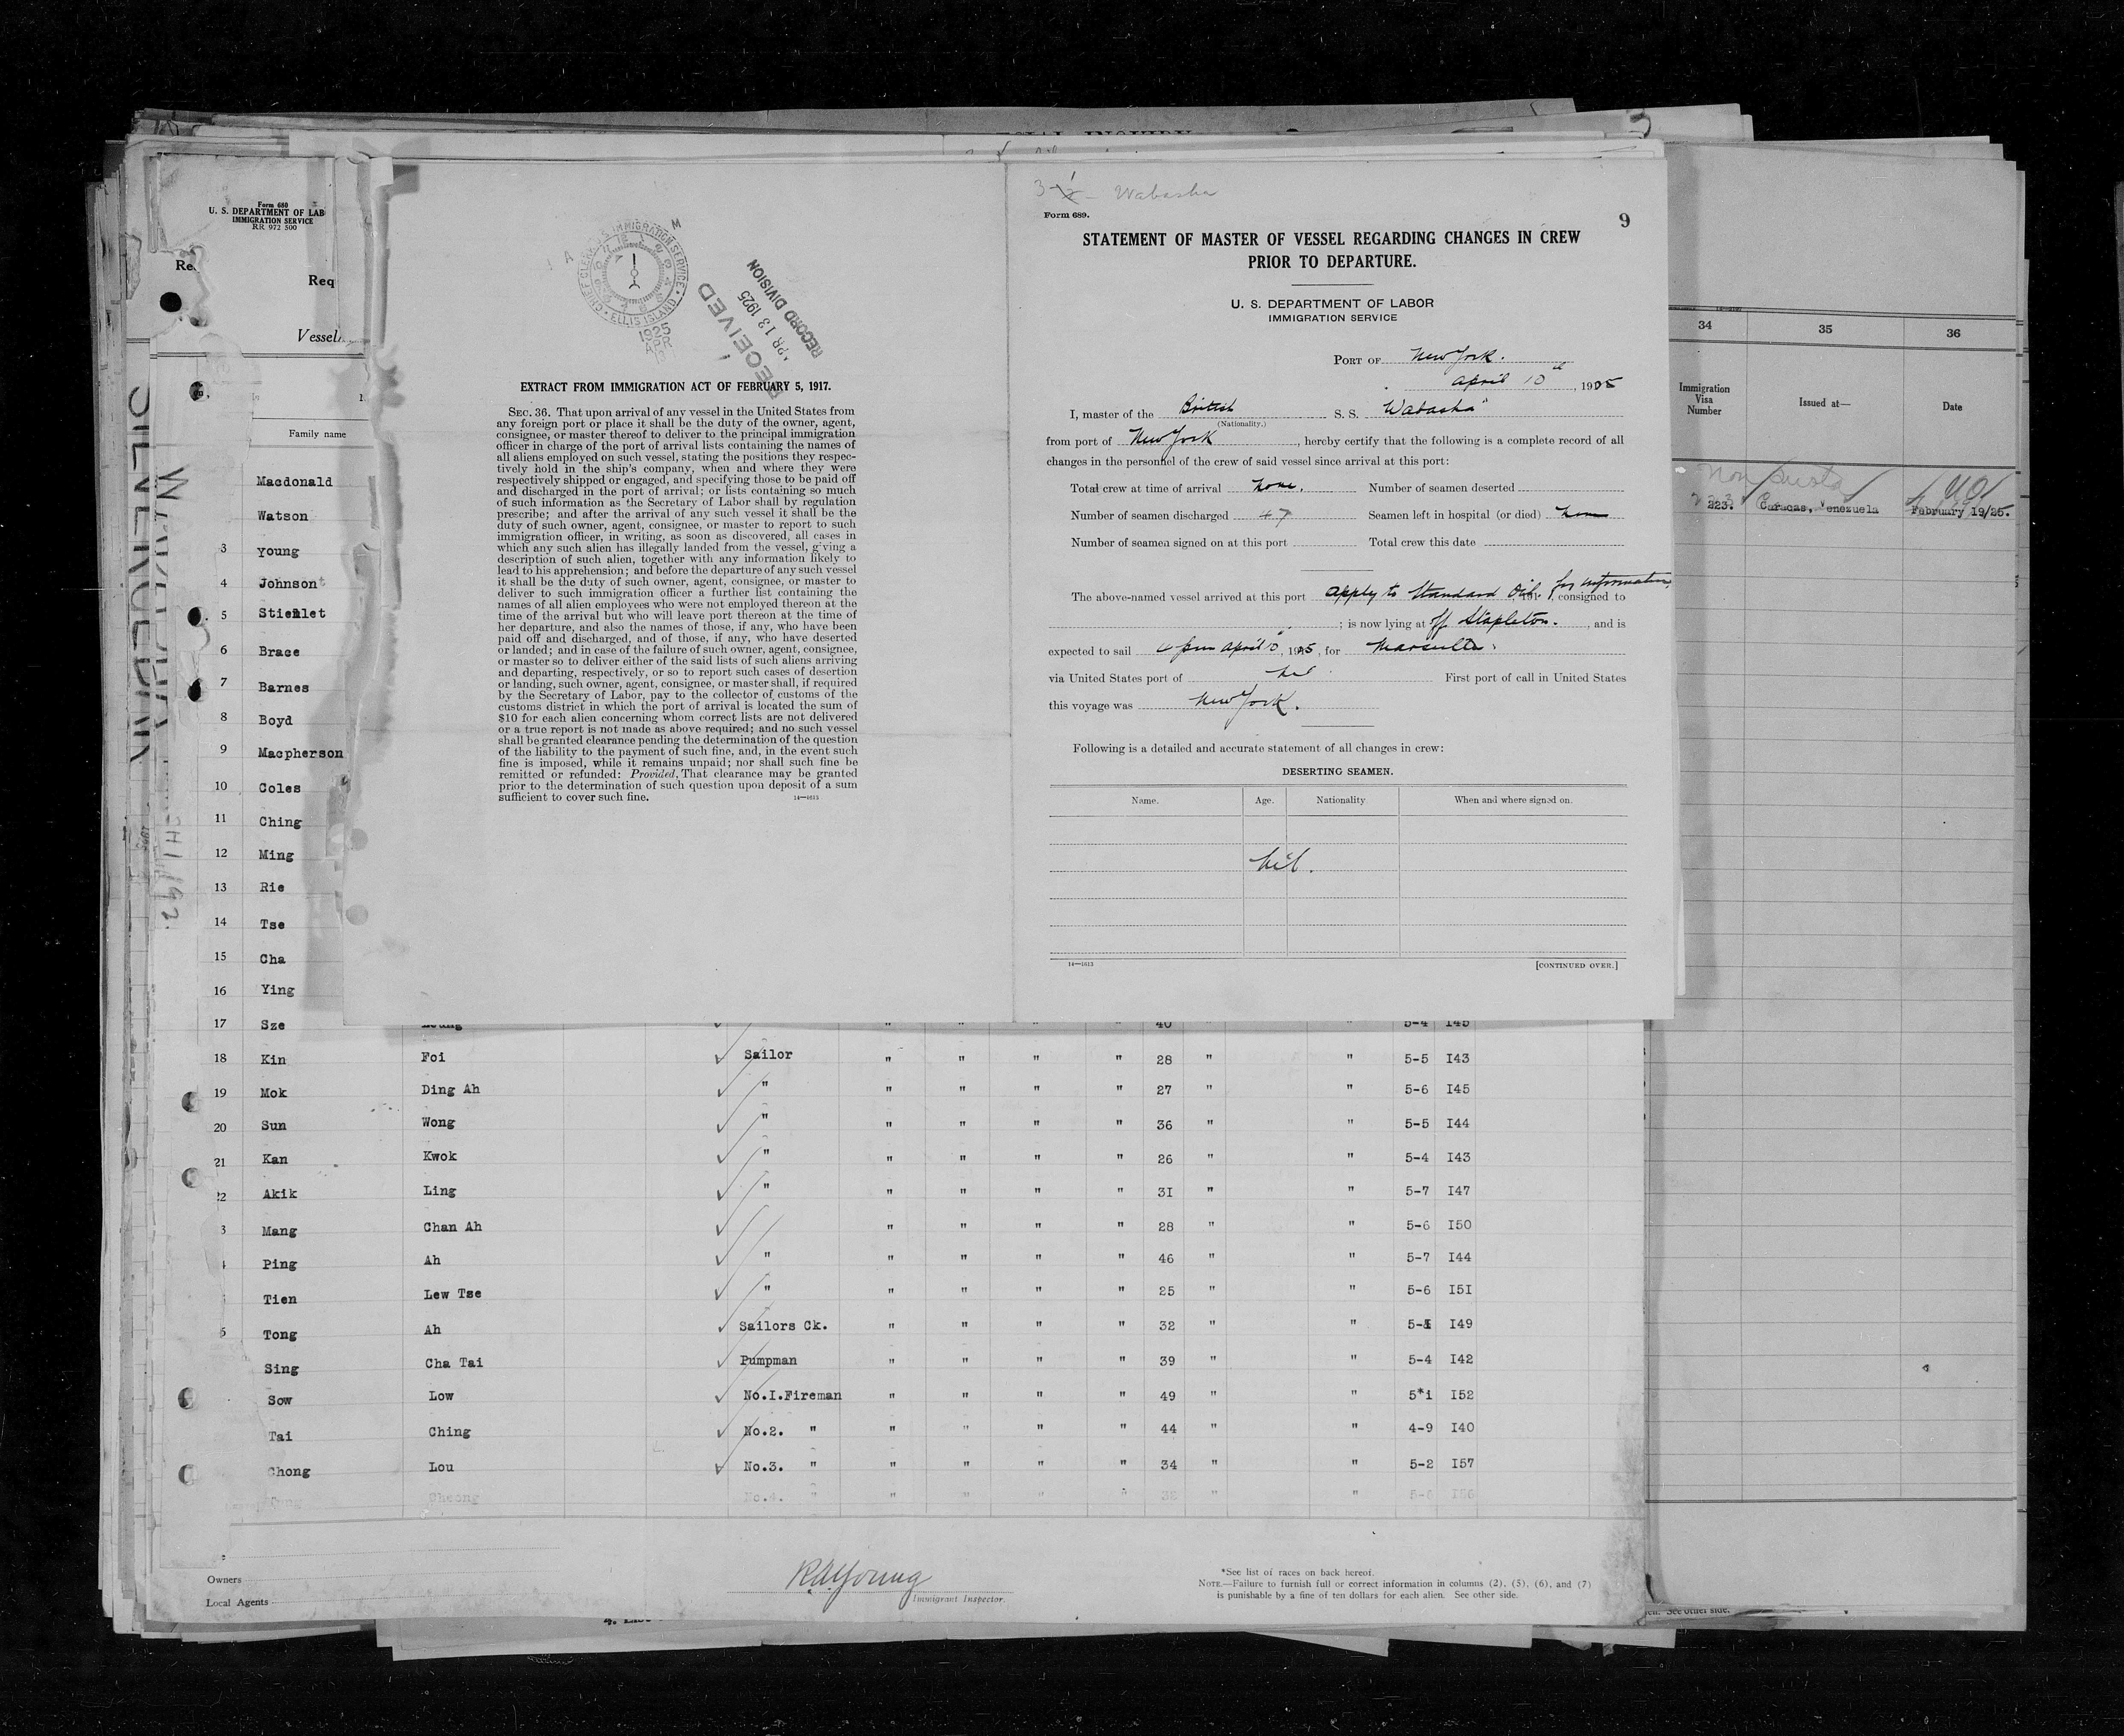 Form 680
U. S. DEPARTMENT OF LAB
IMMIGRATION SERVICE
RR 972 500
Req
Vessel
Family name
Macdonald
Watson
3 young
4 Johnson
5 Stiehlet
6 Brace
7 Barnes
8 Boyd
9 Macpherson
10 Coles
11 Ching
12 Ming
13 Rie
14 Tse
15 Cha
16 Ying
CHIEF CLERK U.S. IMMIGRATION SERVICE · ELLIS ISLAND
1925
RECEIVED
APR 13 1925
RECORD DIVISION
EXTRACT FROM IMMIGRATION ACT OF FEBRUARY 5, 1917.
SEC. 36. That upon arrival of any vessel in the United States from
any foreign port or place it shall be the duty of the owner, agent,
consignee, or master thereof to deliver to the principal immigration
officer in charge of the port of arrival lists containing the names of
all aliens employed on such vessel, stating the positions they respec-
tively hold in the ship's company, when and where they were
respectively shipped or engaged, and specifying those to be paid off
and discharged in the port of arrival; or lists containing so much
of such information as the Secretary of Labor shall by regulation
prescribe; and after the arrival of any such vessel it shall be the
duty of such owner, agent, consignee, or master to report to such
immigration officer, in writing, as soon as discovered, all cases in
which any such alien has illegally landed from the vessel, giving a
description of such alien, together with any information likely to
lead to his apprehension; and before the departure of any such vessel
it shall be the duty of such owner, agent, consignee, or master to
deliver to such immigration officer a further list containing the
names of all alien employees who were not employed thereon at the
time of the arrival but who will leave port thereon at the time of
her departure, and also the names of those, if any, who have been
paid off and discharged, and of those, if any, who have deserted
or landed; and in case of the failure of such owner, agent, consignee,
or master so to deliver either of the said lists of such aliens arriving
and departing, respectively, or so to report such cases of desertion
or landing, such owner, agent, consignee, or master shall, if required
by the Secretary of Labor, pay to the collector of customs of the
customs district in which the port of arrival is located the sum of
$10 for each alien concerning whom correct lists are not delivered
or a true report is not made as above required; and no such vessel
shall be granted clearance pending the determination of the question
of the liability to the payment of such fine, and, in the event such
fine is imposed, while it remains unpaid; nor shall such fine be
remitted or refunded: Provided, That clearance may be granted
prior to the determination of such question upon deposit of a sum
sufficient to cover such fine. 14—1613
Wabasha
Form 689.
9
STATEMENT OF MASTER OF VESSEL REGARDING CHANGES IN CREW
PRIOR TO DEPARTURE.
U. S. DEPARTMENT OF LABOR
IMMIGRATION SERVICE
PORT OF New York.
April 10th, 1925
I, master of the British S. S. Wabasha
(Nationality.)
from port of New York, hereby certify that the following is a complete record of all
changes in the personnel of the crew of said vessel since arrival at this port:
Total crew at time of arrival none. Number of seamen deserted
Number of seamen discharged 47 Seamen left in hospital (or died)
Number of seamen signed on at this port Total crew this date
The above-named vessel arrived at this port apply to Standard Oil for information, 191 , consigned to
; is now lying at off Stapleton. , and is
expected to sail 4 pm April 10, 1925, for Marseille.
via United States port of nil First port of call in United States
this voyage was New York.
Following is a detailed and accurate statement of all changes in crew:
DESERTING SEAMEN.
Name. Age. Nationality. When and where signed on.
nil.
14—1613 [CONTINUED OVER.]
34 35 36
Immigration Visa Number Issued at— Date
Non
223. Caracas, Venezuela February 19/25.
17 Sze Leung " " " " 40 " " 5-4 I45
18 Kin Foi Sailor " " " " 28 " " 5-5 I43
19 Mok Ding Ah " " " " " 27 " " 5-6 I45
20 Sun Wong " " " " " 36 " " 5-5 I44
21 Kan Kwok " " " " " 26 " " 5-4 I43
22 Akik Ling " " " " " 31 " " 5-7 I47
3 Mang Chan Ah " " " " 28 " " 5-6 I50
Ping Ah " " " " " 46 " " 5-7 I44
Tien Lew Tse " " " " " 25 " " 5-6 I5I
Tong Ah Sailors Ck. " " " " 32 " " I49
Sing Cha Tai Pumpman " " " " 39 " " 5-4 I42
Sow Low No.I.Fireman " " " " 49 " " 5*1 I52
Tai Ching No.2. " " " " " 44 " " 4-9 I40
Chong Lou No.3. " " " " " 34 " " 5-2 I57
Cheong No.4. "
Owners
Local Agents
R.A. Young
Immigrant Inspector.
*See list of races on back hereof.
NOTE.—Failure to furnish full or correct information in columns (2), (5), (6), and (7)
is punishable by a fine of ten dollars for each alien. See other side.
See other side.